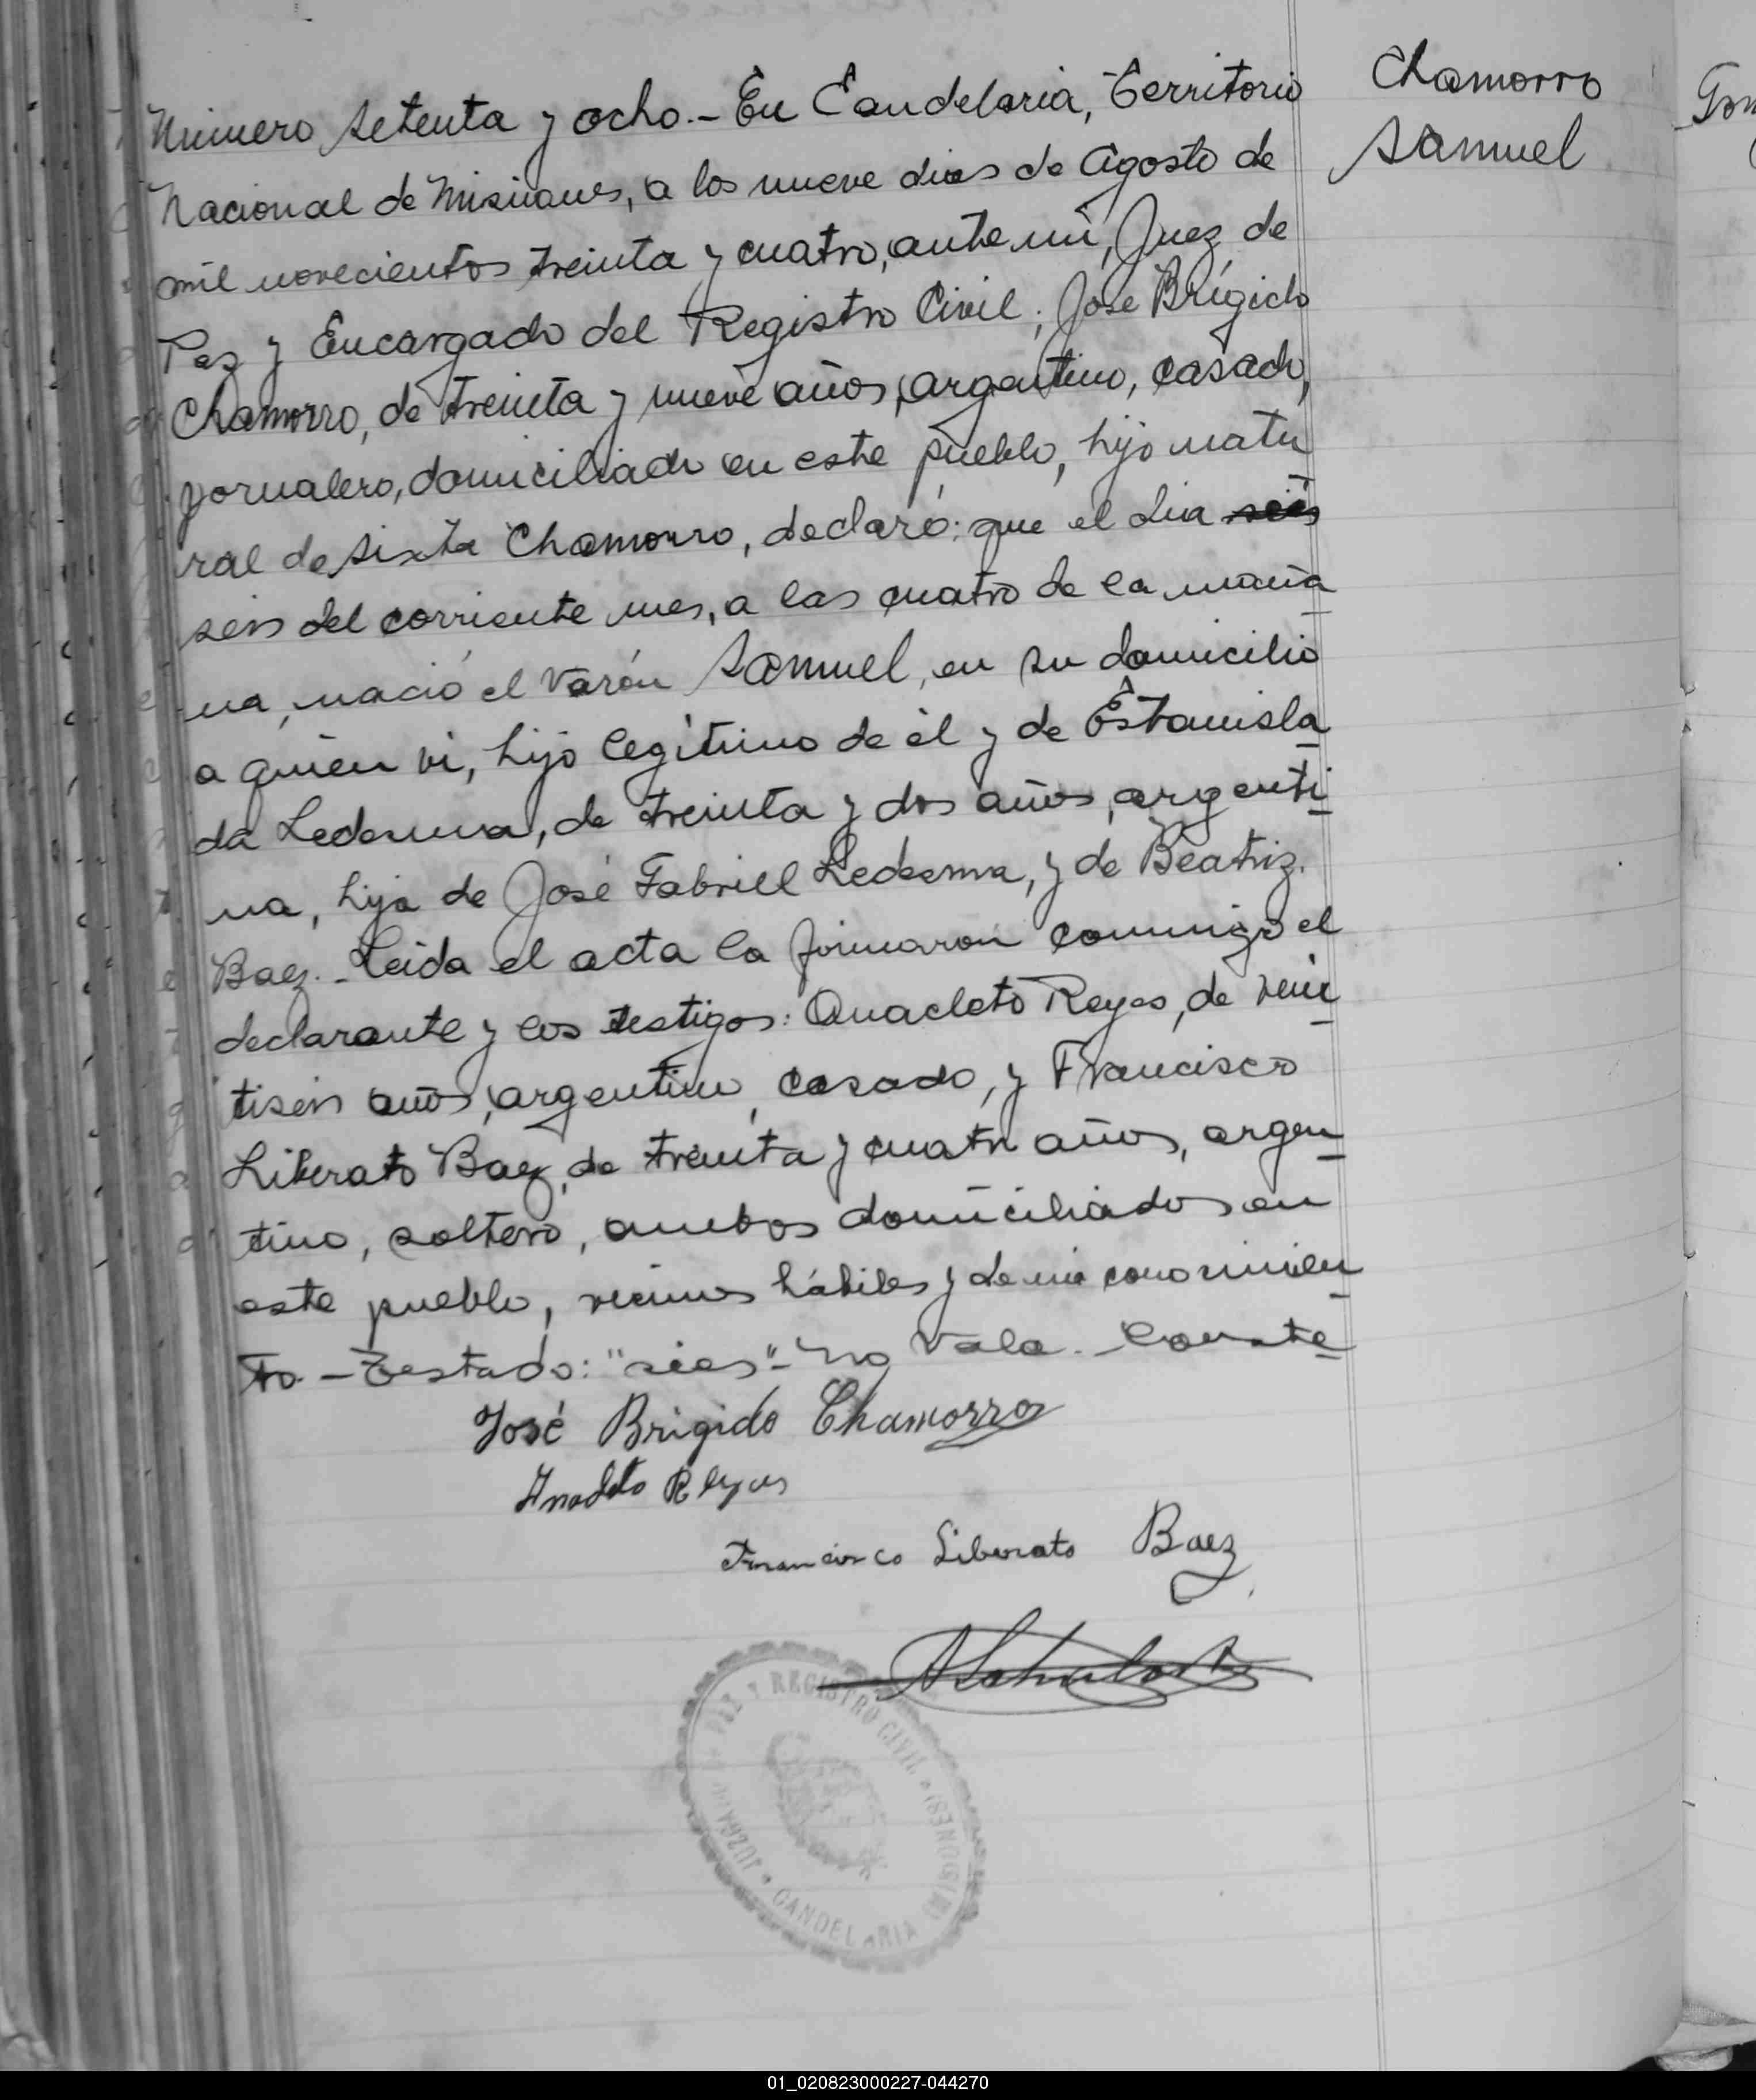 Número setenta y ocho.- En Candelaria, Territorio
Nacional de Misiones, a los nueve dias de Agosto de
mil novecientos treinta y cuatro, ante mi, Juez de
Paz y Encargado del Registro Civil; José Brígido
Chamorro, de treinta y nueve años, argentino, casado,
jornalero, domiciliado en este pueblo, hijo natu
ral de Sixta Chamorro, declaró: que el dia seis
seis del corriente mes, a las cuatro de la maña
na, nació el varón Samuel, en su domicilio
a quien vi, hijo legítimo de él y de Estanisla
da Ledesma, de treinta y dos años, argenti
na, hija de José Fabriel Ledesma, y de Beatriz
Baez.- Leida el acta la firmaron conmigo el
declarante y los testigos: Anacleto Reyes, de vein
tiseis años, argentino, casado, y Francisco
Liberato Baez, de treinta y cuatro años, argen
tino, soltero, ambos domiciliados en
este pueblo, vecinos hábiles y de mi conocimien
to.- Testado: "sies"- no vale.- Conste
José Brigido Chamorro
Anacleto Reyes
Francisco Liberato Baez
Chamorro
Samuel
JUZGADO DE PAZ Y REGISTRO CIVIL • (MISIONES) • CANDELARIA
01_020823000227-044270